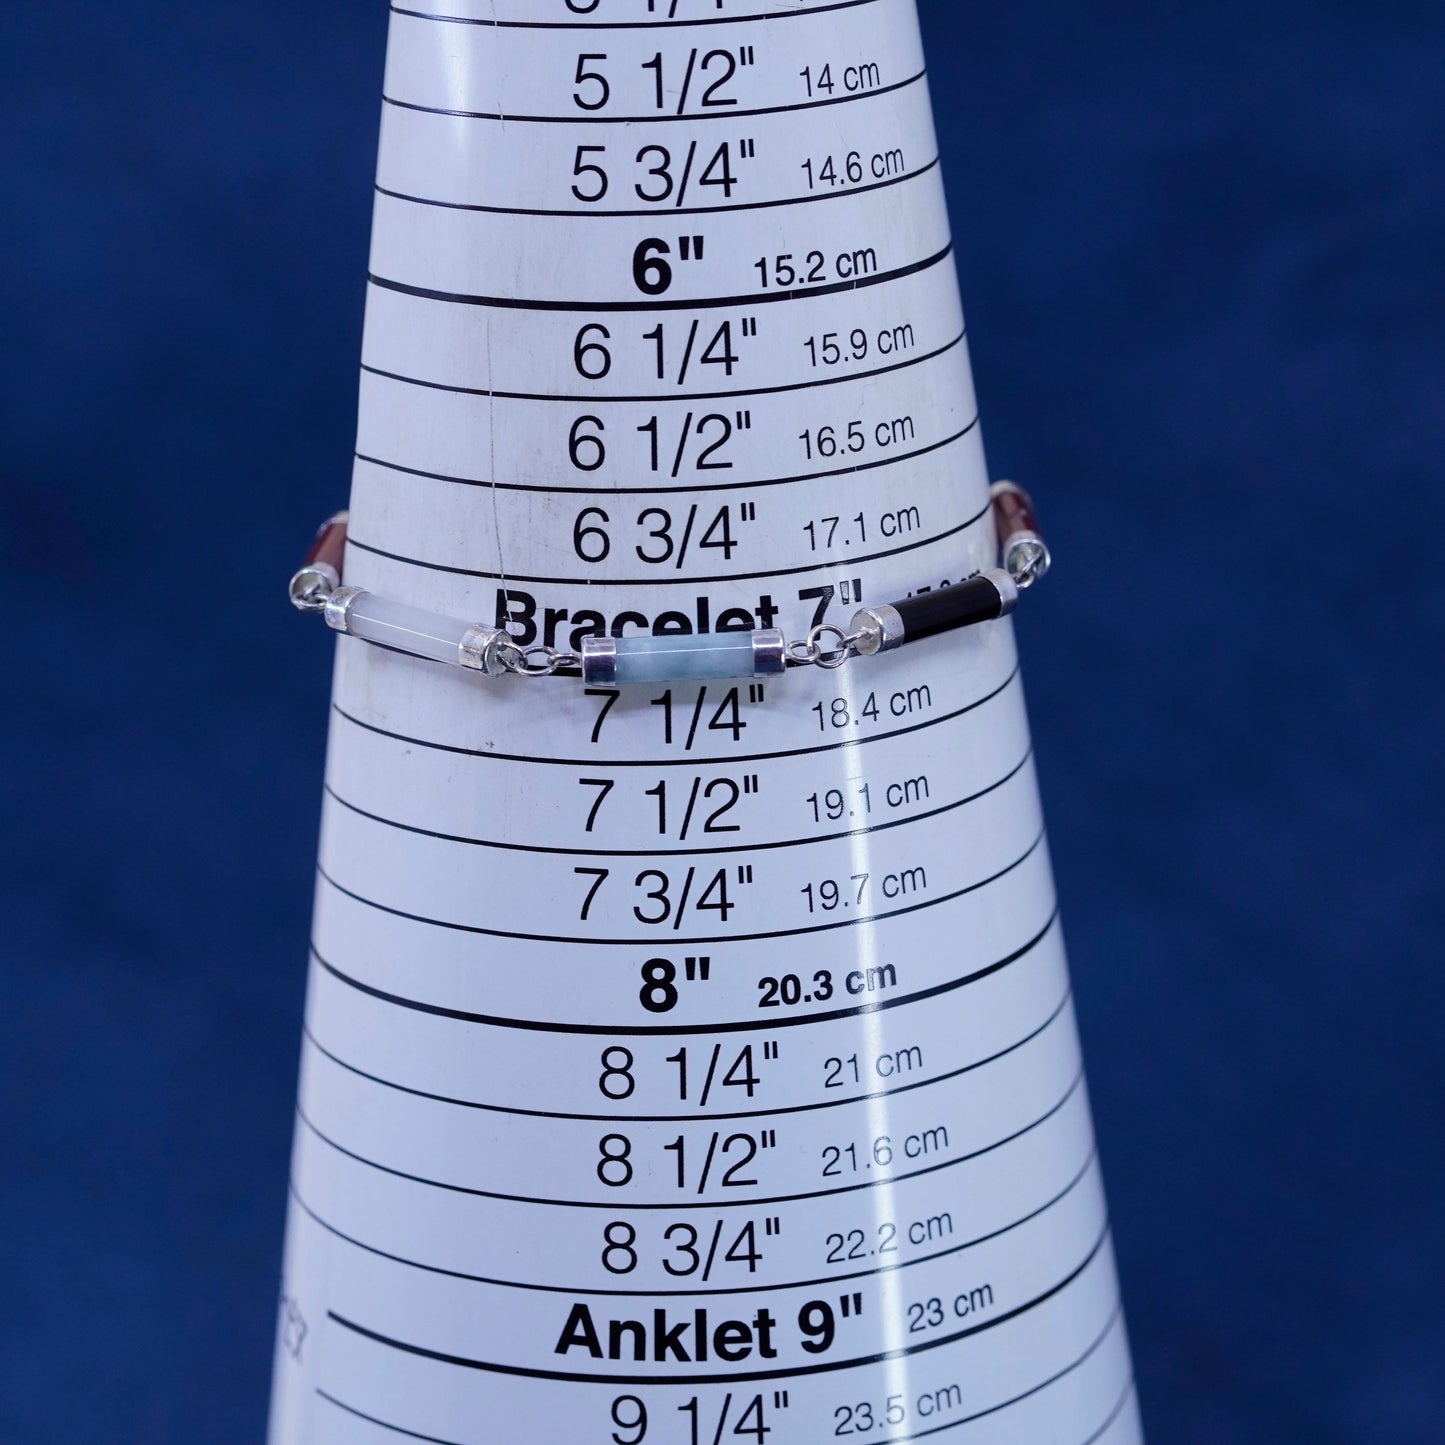 5 1/2" 14 cm
5 3/4" 14.6 cm
6" 15.2 cm
6 1/4" 15.9 cm
6 1/2" 16.5 cm
6 3/4" 17.1 cm
Bracelet 7"
7 1/4" 18.4 cm
7 1/2" 19.1 cm
7 3/4" 19.7 cm
8" 20.3 cm
8 1/4" 21 cm
8 1/2" 21.6 cm
8 3/4" 22.2 cm
Anklet 9" 23 cm
9 1/4" 23.5 cm